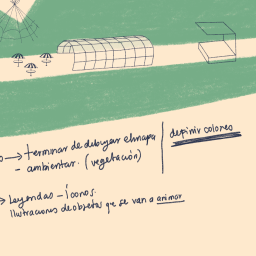 → terminar de dibujar el mapa
- ambientar. (vegetación)
definir colores
→ Leyendas - Íconos.
Ilustraciones de objetos que se van a animar